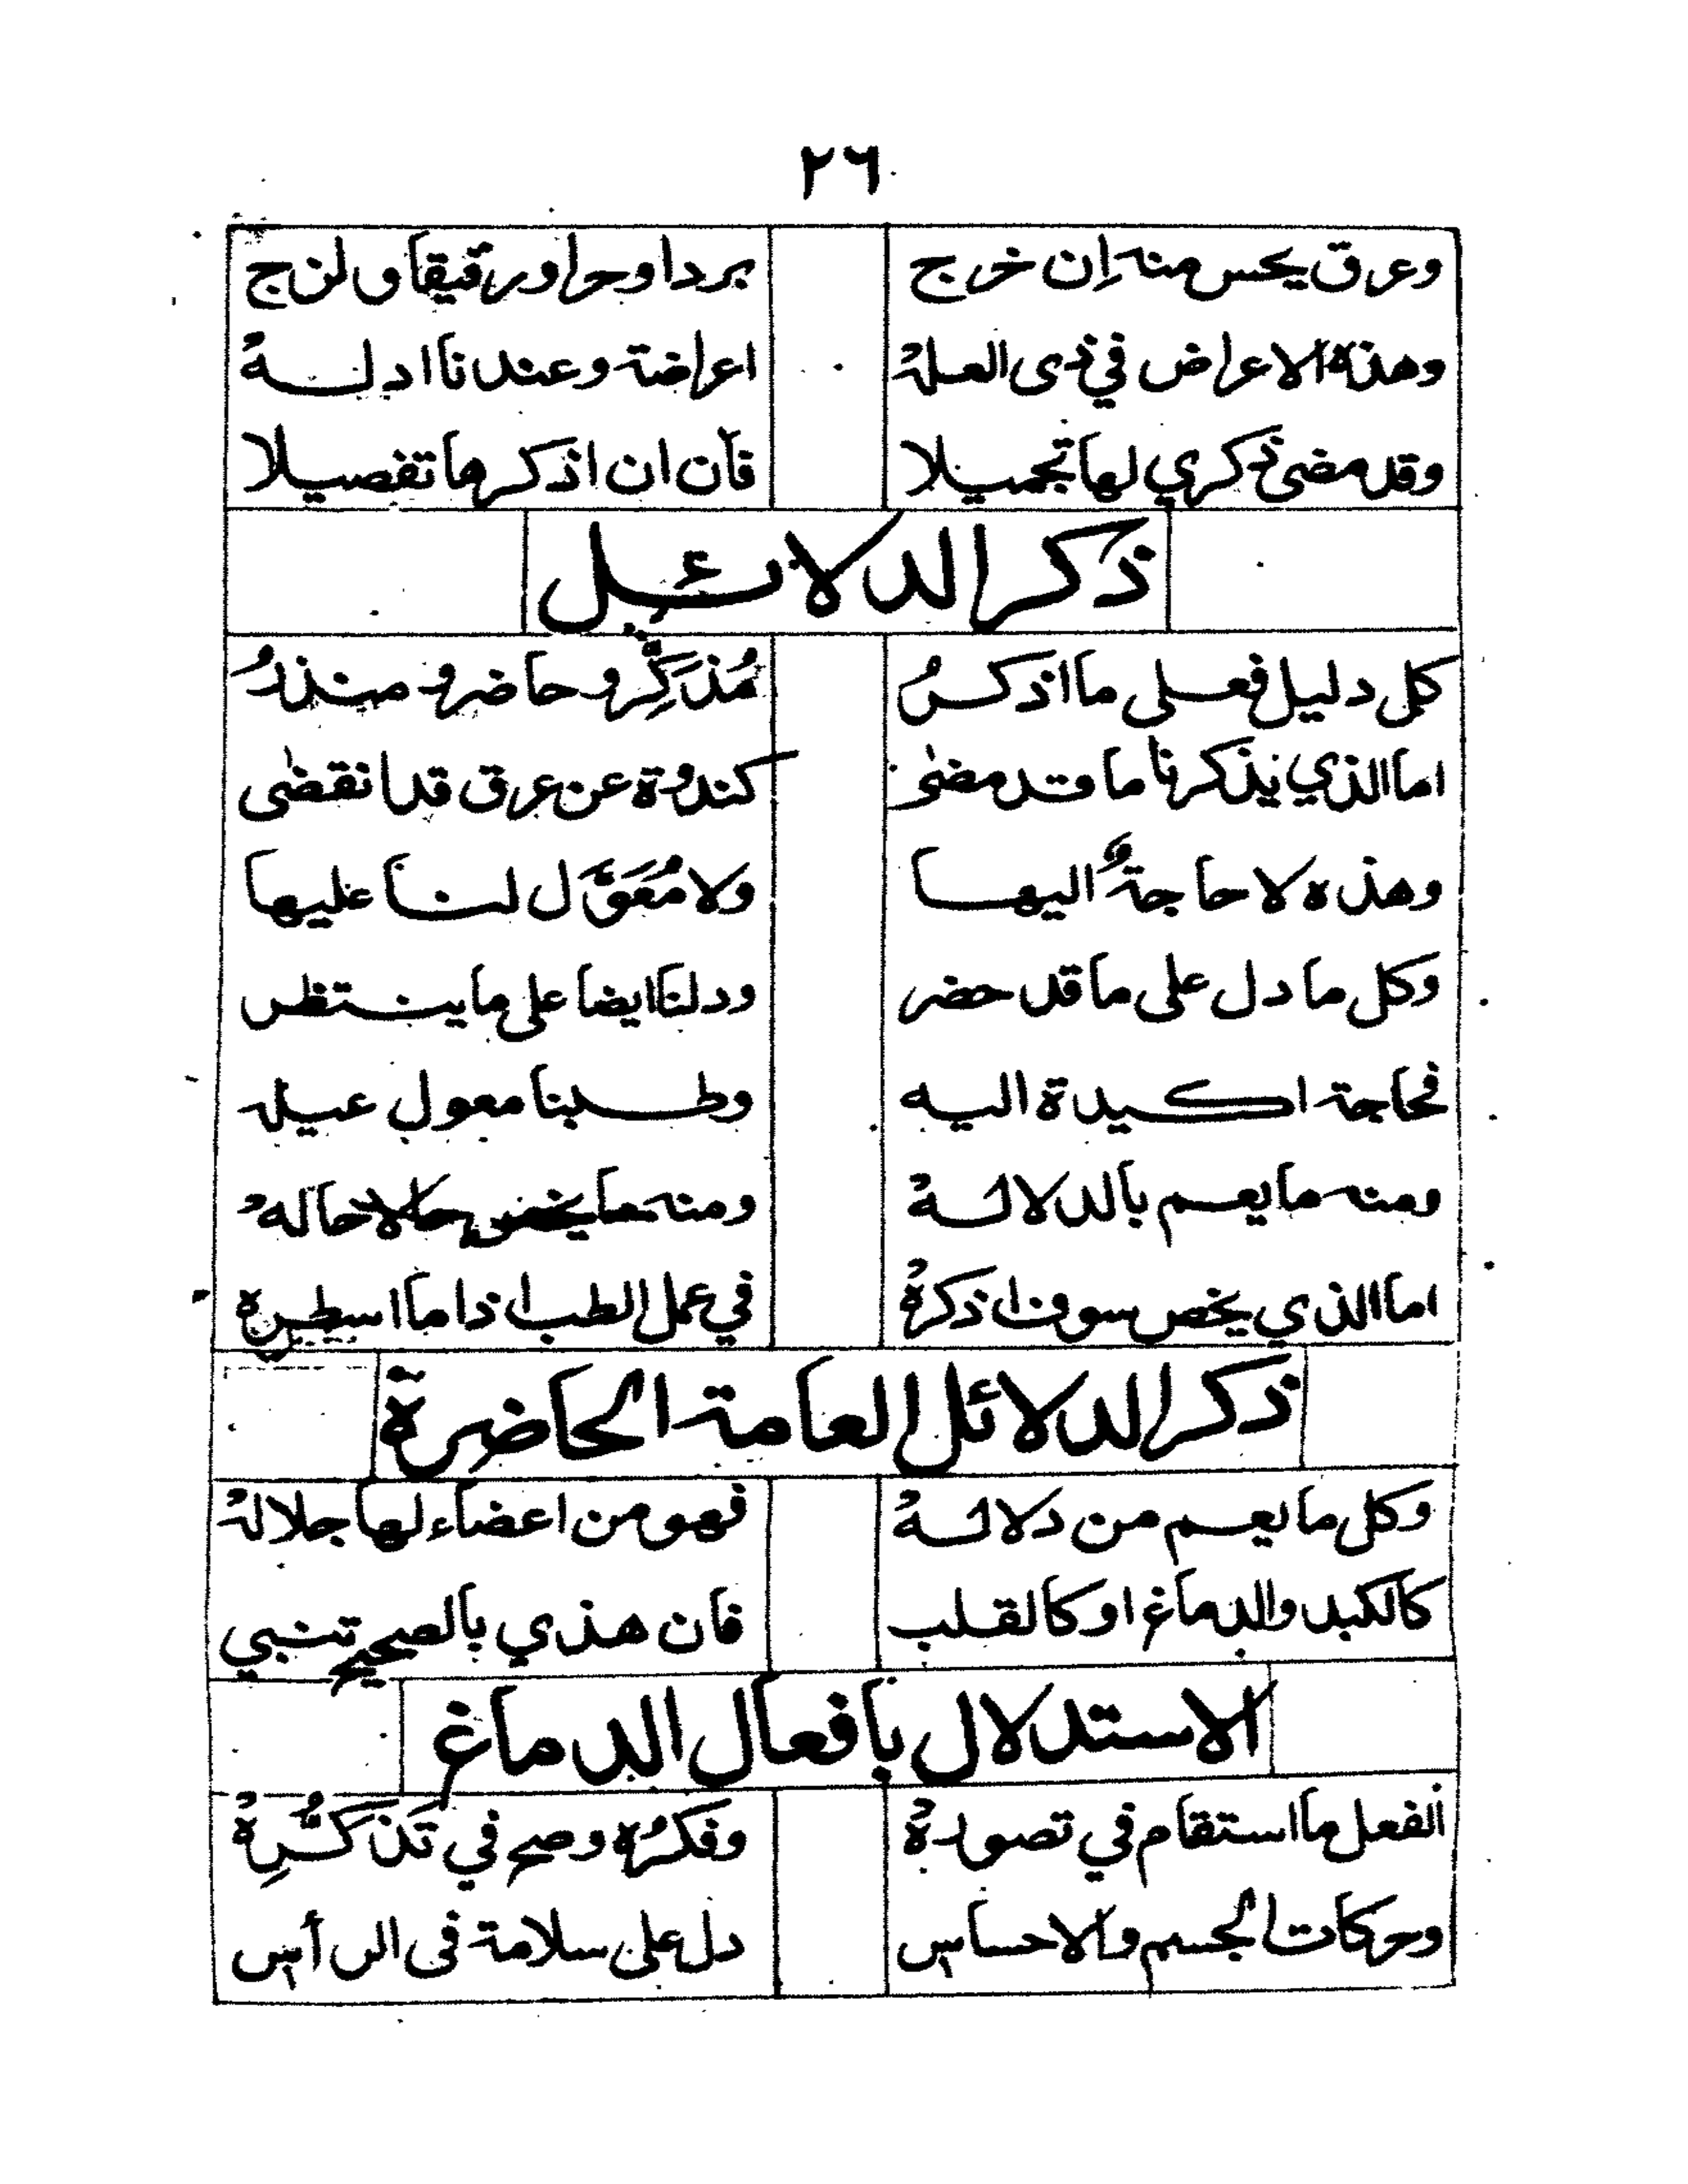 ٢٦
وعرق يحس منه إن خرج برداوحراورقيقاو لزج
وهذه الاعراض في ذى العلۃُ اعراضۃ وعندنا ادلــہُ
وقد مضىٰ ذكري لها تجميلا فآن ان اذكرها تفصيلا
ذكر الدلائل
كل دليل فعلى ما اذكرُ مُذَكِّر و حاضر و منذرُ
اما الذي يذكرنا ما قد مضىٰ كندوُة عن عرق قد انقضٰى
وهذه لا حاجۃٌ اليها ولا مُعَوَّل لنا عليها
وكل ما دل على ما قد حضر ودلنا ايضا على ما ينتظر
فحاجۃ اكيدة اليه وطبنا معول عيله
ومنه ما يعم بالدلالــہُ ومنه ما يخص حالا حالهُ
اما الذي يخص سوف اذكرهُ في عمل الطب اذا ما اسطره
ذكر الدلائل العامۃ الحاضرة
وكل ما يعم من دلالــہُ فهو من اعضاء لها جلالۃُ
كالكبد والدماغ او كالقلب فان هذي بالصحيح تنبي
الاستدلال بافعال الدماغ
الفعل ما استقام في تصورهُ وفكرُه وصح في تَذَكُّرِهُ
وحركات الجسم والاحساس دل على سلامۃ فى الرأس